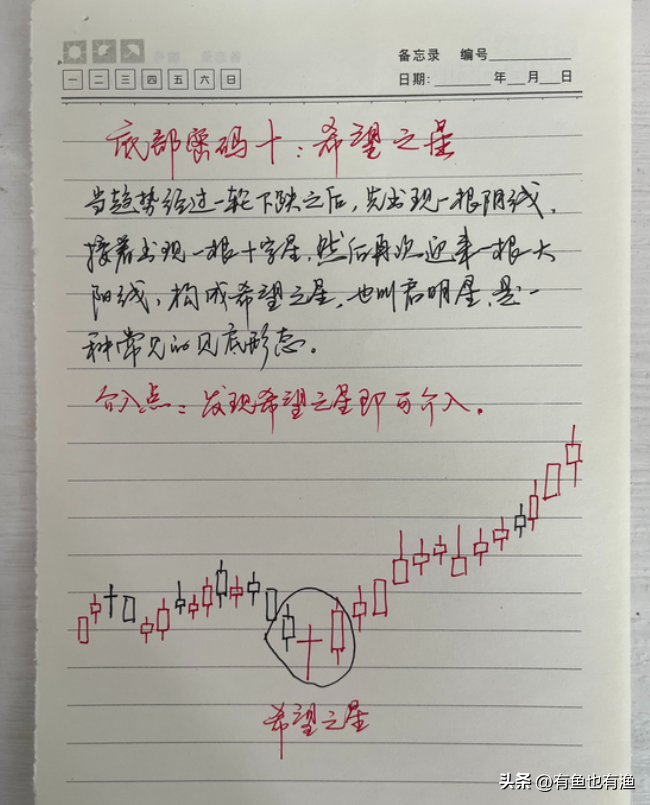 备忘录 编号
一 二 三 四 五 六 日
日期: 年 月 日
底部密码十:希望之星
当趋势经过一轮下跌之后,先出现一根阴线,
接着出现一根十字星,然后再次迎来一根大
阳线,构成希望之星,也叫启明星,是一
种常见的见底形态。
介入点:发现希望之星即可介入。
希望之星
头条 @有鱼也有渔